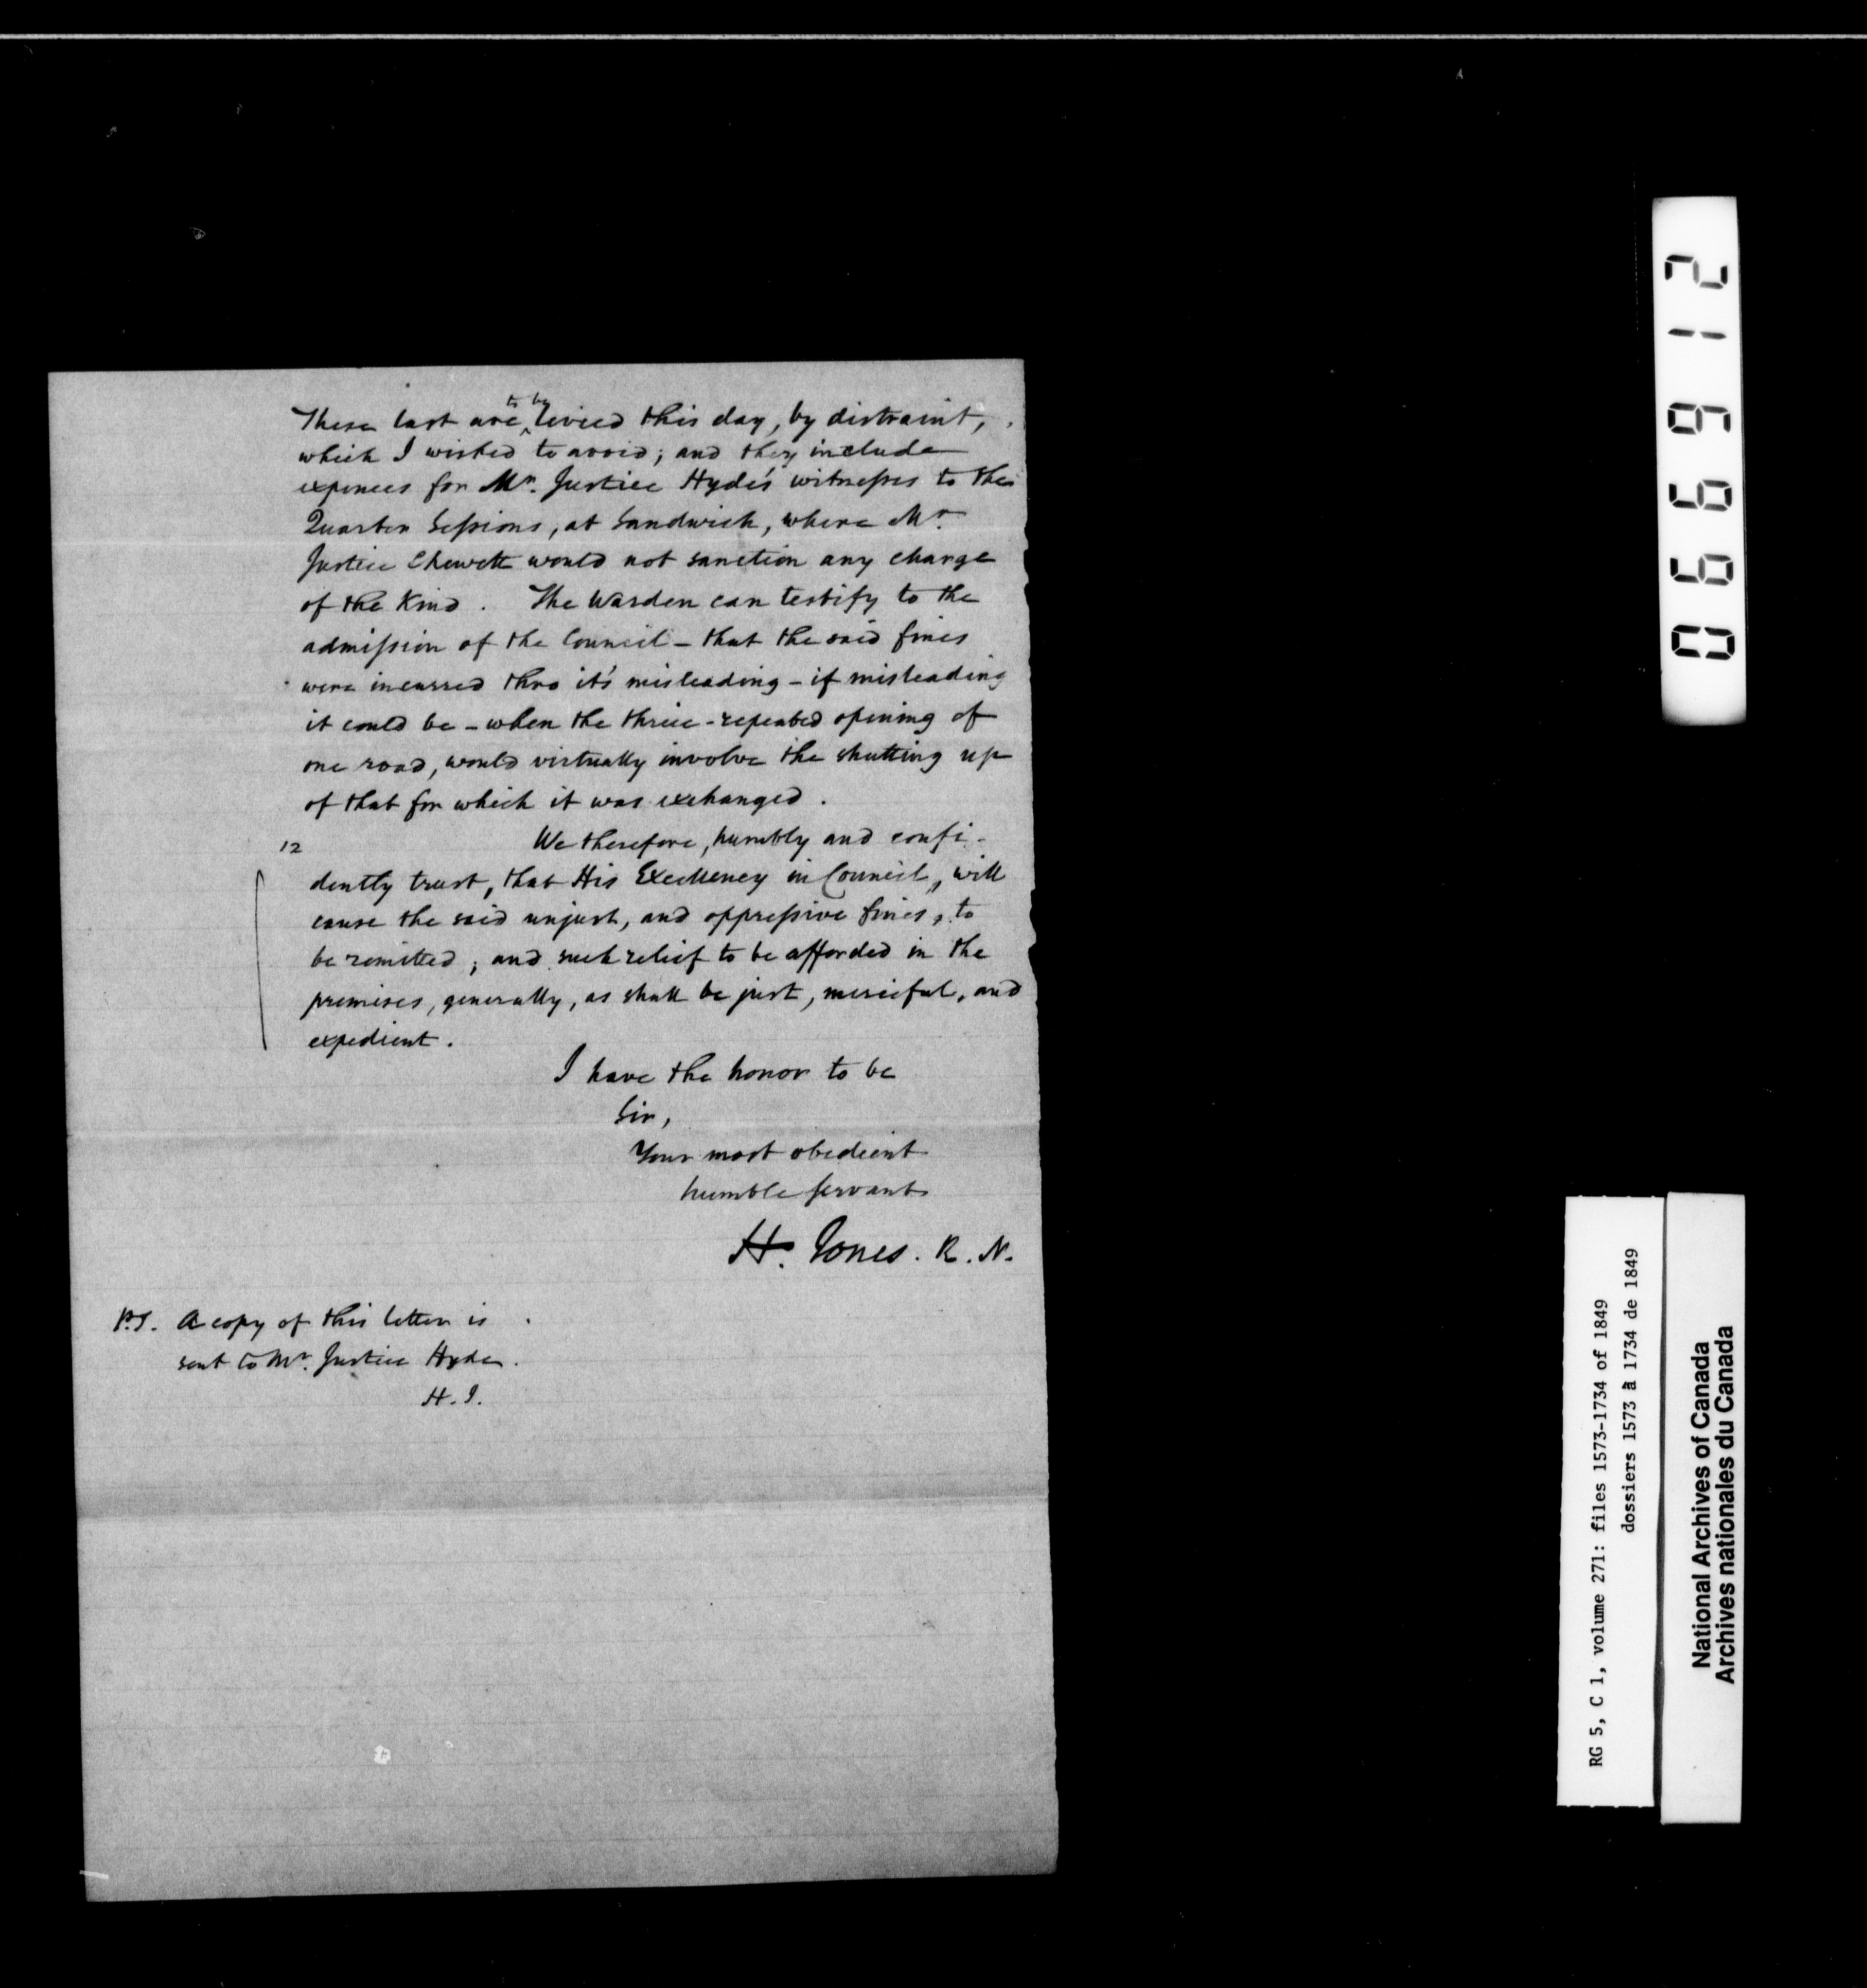 These last are ^to be levied this day, by distraint,
which I wished to avoid; and they include
expences for Mr. Justice Hyde's witnesses to the
Quarter Sessions, at Sandwich, where Mr.
Justice Chewett would not sanction any charge
of the Kind. The Warden can testify to the
admission of the Council - that the said fines
were incurred thro it's misleading - if misleading
it could be - when the thrice-repeated opening of
one road, would virtually involve the shutting up
of that for which it was exchanged.
12 We therefore, humbly and confi-
dently trust, that His Excellency in Council, will
cause the said unjust, and oppressive fines, to
be remitted; and such relief to be afforded in the
premises, generally, as shall be just, merciful, and
expedient.
I have the honor to be
Sir,
Your most obedient
humble servant
H. Jones. R. N.
P.S. A copy of this letter is
sent to Mr. Justice Hyde.
H. J.
066912
RG 5, C 1, volume 271: files 1573-1734 of 1849
dossiers 1573 à 1734 de 1849
National Archives of Canada
Archives nationales du Canada